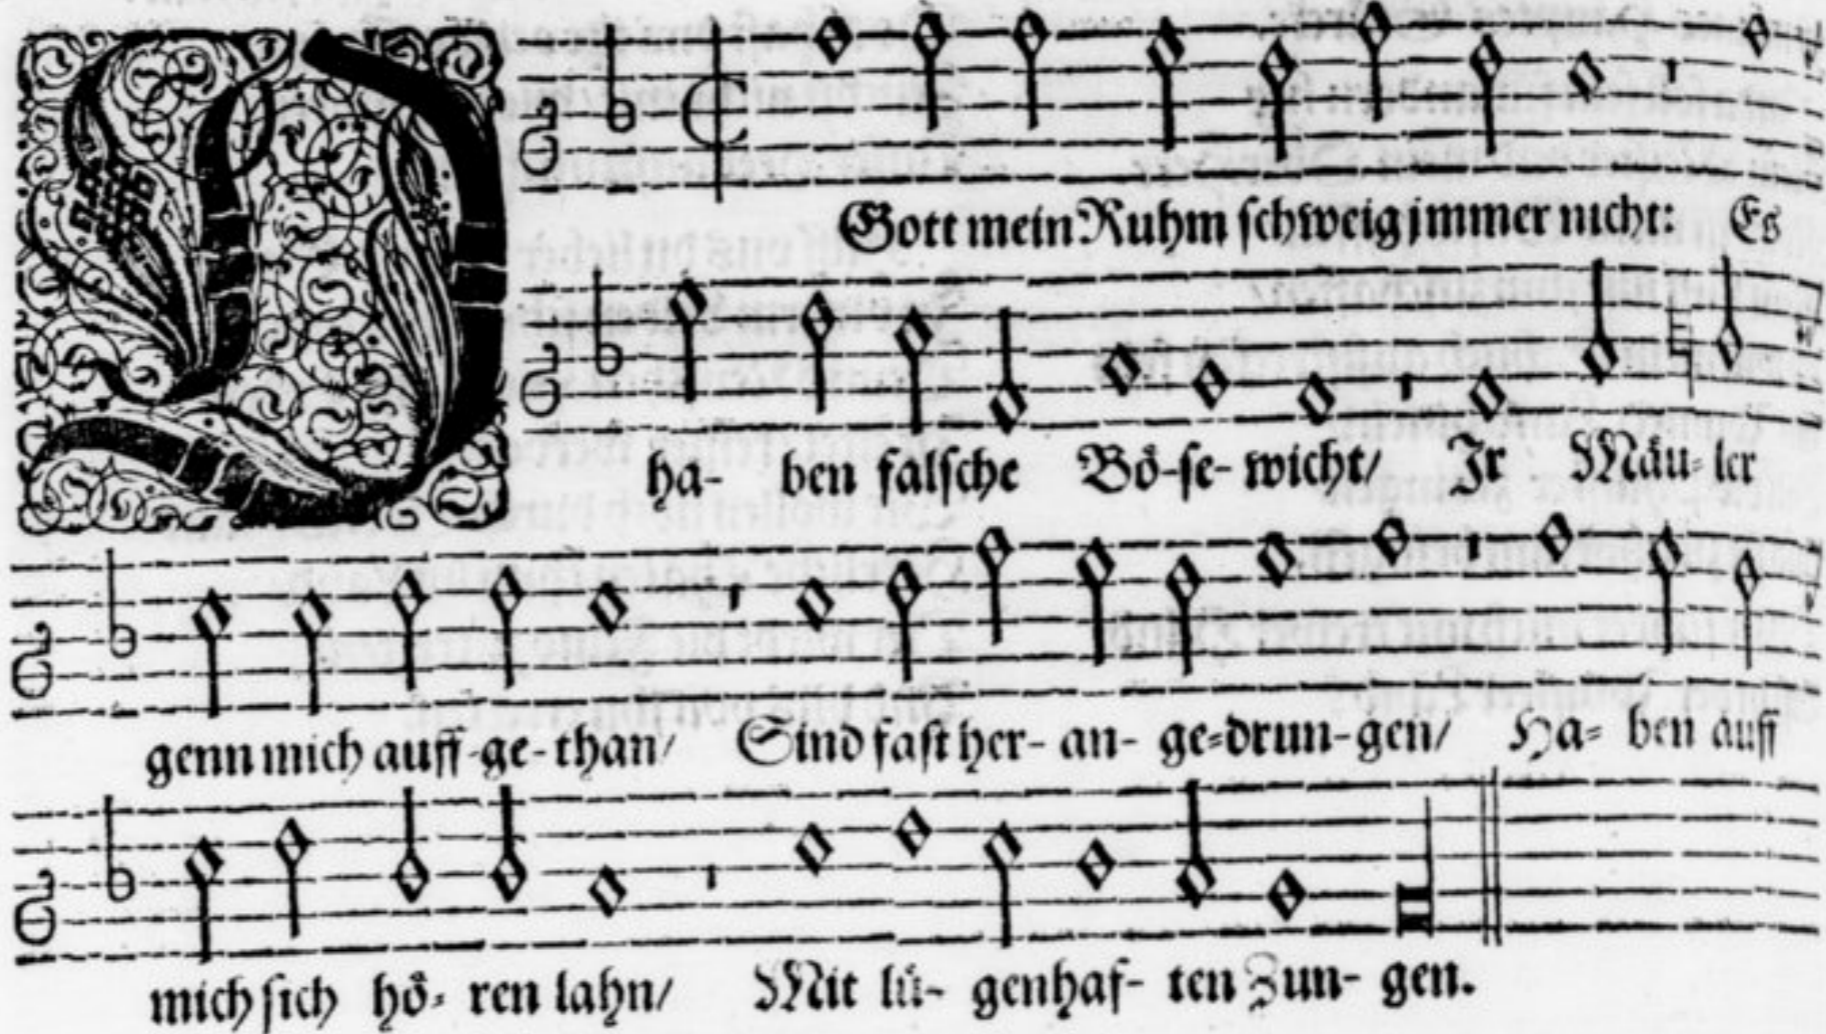 O Gott mein Ruhm schweig jmmer nicht: Es
ha- ben falsche Bö-se- wicht/ Jr Mäu- ler
genn mich auff-ge-than/ Sind fast her-an-ge-drun-gen/ Ha- ben auff
mich sich hö- ren lahn/ Mit lü- genhaf- ten Zun- gen.